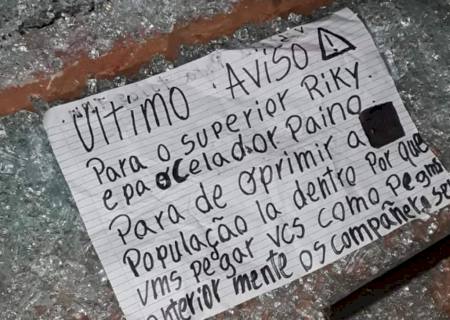 ÚLTIMO AVISO
Para o superior RIKY
e pa o Celador Paino
Para de oprimir a
População la dentro Por que
vms pegar vcs como pegmo
anterior mente os compañero